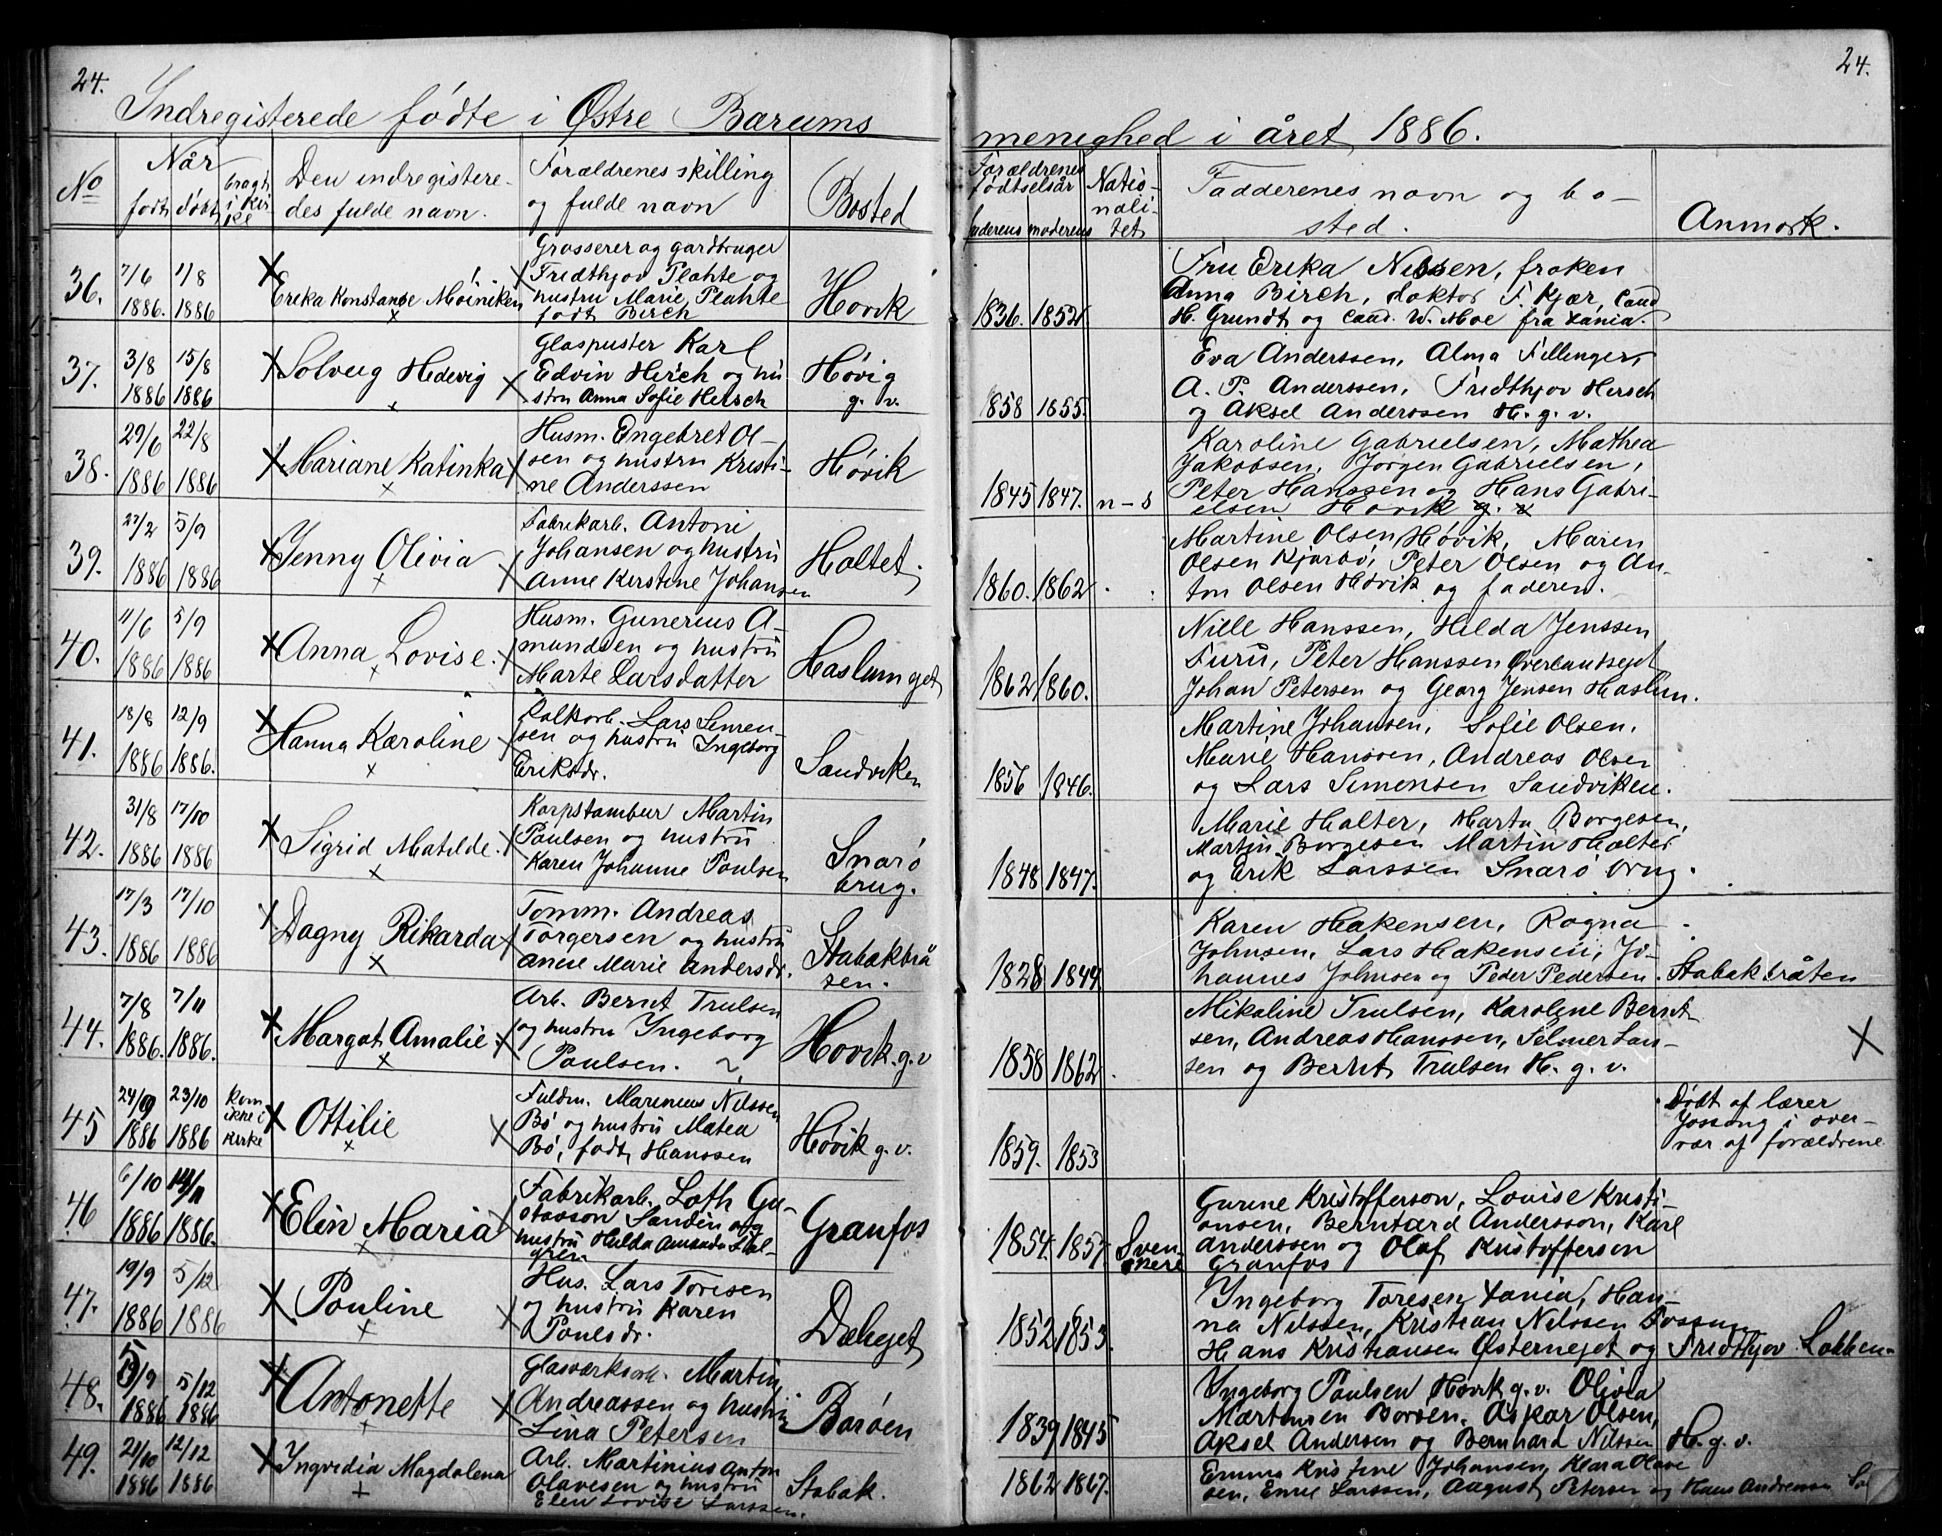 24.
Indregisterede fødte i Østre Bærums
No
Når
født
døbt
bragt i kirke
Den indregistere-
des fulde navn.
Forældrenes stilling
og fulde navn
Bosted
36.
7/6 1/8
1886. 1886
Erika Konstanse Møiniken
Grosserer og gardbruger
Fredthjov Plahte og
hustru Marie Plahte
født Birch
Høvik
37.
3/8 15/8
1886 1886
Solveig Hedevig
Glaspuster Karl
Edvin Hirsch og hu
stru Anna Sofie Hirsch
Høvig
g. v.
38.
29/6 22/8
1886 1886
Mariane Katinka
Husm. Engebret Ol-
sen og hustru Kristi-
ne Anderssen
Høvik
39.
27/2 5/9
1886 1886
Jenny Olivia
Fabrikarb. Antoni
Johansen og hustru
Anne Kirstene Johansen
Holtet.
40.
11/6 5/9
1886 1886
Anna Lovise.
Husm. Gunerius A-
mundsen og hustru
Marte Larsdatter
Haslumejet
41.
18/8 12/9
1886 1886.
Hanna Karoline
Kalkarb. Lars Simen-
sen og hustru Ingeborg
Eriksdr.
Sandviken
42.
31/8 17/10
1886 1886
Sigrid Matilde.
Korpstambur Martin
Paulsen og hustru
Karen Johanne Paulsen
Snarø
brug.
43.
17/3 17/10
1886 1886
Dagny Rikarda
Tømm. Andreas
Torgersen og hustru
Anne Marie Andersdr.
Stabækbrå
ten.
44.
7/8 7/11
1886. 1886.
Margot Amalie
Arb. Bernt Trulsen
og hustru Ingeborg
Paulsen.
Høvik. g. v
45
24/9 23/10
1886 1886
kom
ikke i
kirke
Ottilie
Fuldm. Marinius Nilssen
Bø og hustru Matea
Bø, født Hanssen
Høvik g. v.
46
6/10 14/11
1886 1886.
Elin Maria
Fabrikarb. Loth Gu-
stavson Sandin og
hustru Hulda Amanda Dal-
gren
Granfos
47.
19/9 5/12
1886 1886
Pauline
Hus. Lars Toresen
og hustru Karen
Paulsdr.
Dæliejet
48.
5/9 5/12
1886 1886
Antonette
Glasværksarb. Martin
Andreassen og hustru
Lina Petersen
Borøen
49.
21/10 12/12
1886 1886
Ingvedia Magdalena
Arb. Martinius Anton
Olavesen og hustru
Elen Lovise Larssen.
Stabæk.
24.
menighed i året 1886.
Forældrenes
fødselsår
faderens moderens
Natio-
nali-
tet
Fadderenes navn og bo-
sted.
Anmærk.
1836. 1852
Fru Erika Nilssen, frøken
Anna Birch, doktor F. Kjær, Cand
H. Grundt og Cand. W. Moe fra Xania.
1858 1855.
Eva Anderssen, Alma Fillinger,
A. P. Anderssen, Fridthjov Hirsch
og Aksel Anderssen H. g. v.
1845 1847. n-s
Karoline Gabrielsen, Mathea
Jakobsen, Jørgen Gabrielsen,
Peter Hanssen og Hans Gabri-
elsen Høvik g. v
1860. 1862
Martine Olsen Høvik, Maren
Olsen Kjørbo, Peter Olsen og An-
ton Olsen Høvik og faderen.
1862 1860.
Nille Hanssen, Hilda Jenssen
Furu, Peter Hanssen Øverlandsejet
Johan Petersen og Georg Jensen Haslum.
1856 1846.
Martine Johansen, Sofie Olsen,
Marie Hanssen, Andreas Olsen
og Lars Simensen Sandviken.
1848 1847.
Marie Holter, Marta Børgesen,
Martin Børgesen Martin Holter
og Erik Larssen Snarø brug.
1828 1844
Karen Håkensen, Ragna
Johnsen, Lars Håkensen, Jo-
hannes Johnsen og Peder Pedersen. Stabækbråten
1858 1862
Mikaline Trulsen, Karoline Bernt
sen, Andreas Hanssen, Selmer Lars-
sen og Bernt Trulsen H. g. v.
1859. 1853
Døbt af lærer
Jossang i over-
vær af forældrene
1854. 1857 Sven-
skere
Gurine Kristofferson, Lovise Kristi-
ansen, Berntard Andersson, Karl
Anderssen og Olof Kristofferson
Granfos
1852 1853.
Ingeborg Toresen Xania, Han-
na Nilssen, Kristian Nilssen Fossum
Hans Kristiansen Østernejet og Fridthjov Løkken
1839 1845
Ingeborg Paulsen Høvik g. v. Olivia
Martinsen Borøen, Oskar Olsen,
Aksel Andersen og Bernhard Nilssen H. g. v.
1862 1867.
Emma Kristine Johansen, Klara Olave
sen, Emil Larssen, August Petersen og Hans Andresen